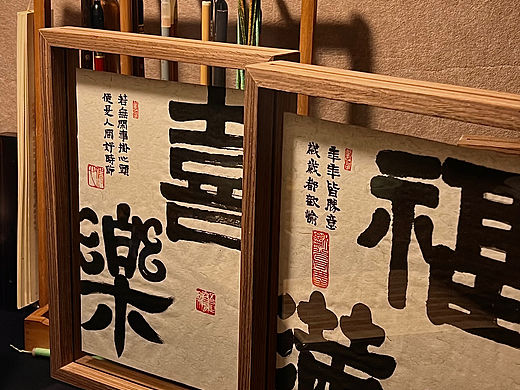 喜
樂
若無閑事掛心頭
便是人間好時節
福
滿
年年皆勝意
歲歲都歡愉